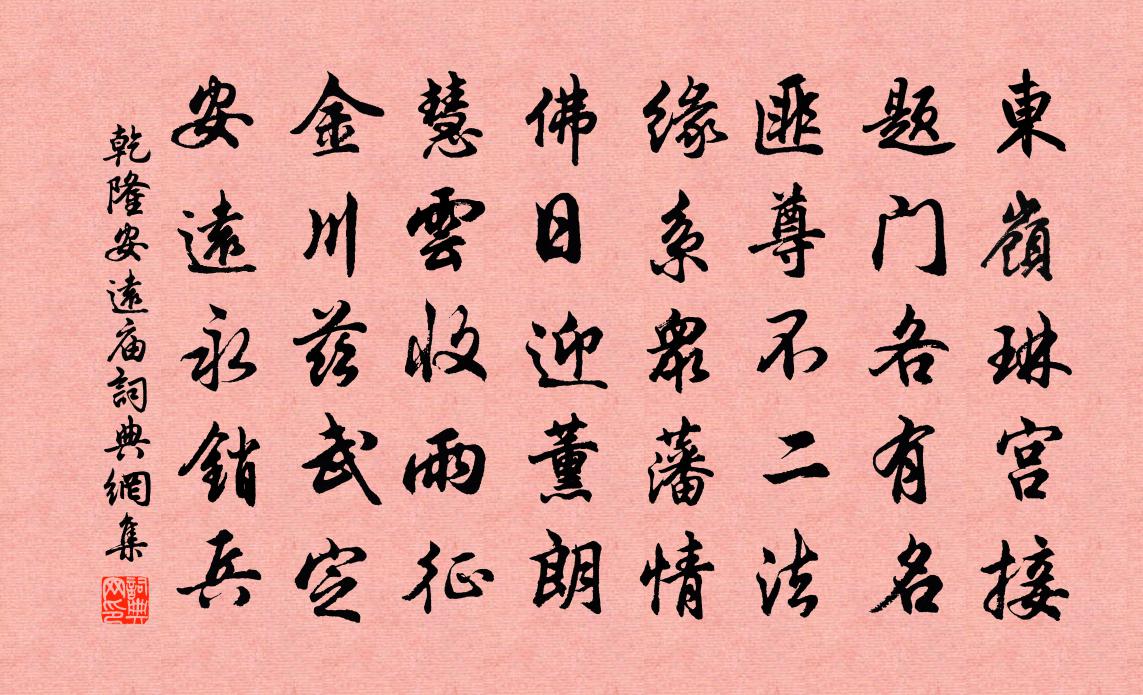 東嶺琳宮接
题门各有名
匪尊不二法
缘系衆藩情
佛日迎薰朗
慧雲收雨征
金川兹武定
安遠永銷兵
乾隆安遠庙詞典網集
詞典網印